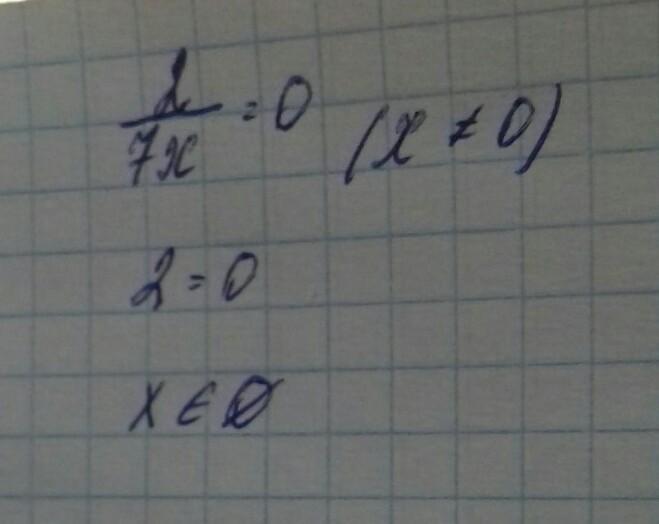 2/7x = 0 (x ≠ 0)
2 = 0
x ∈ ∅